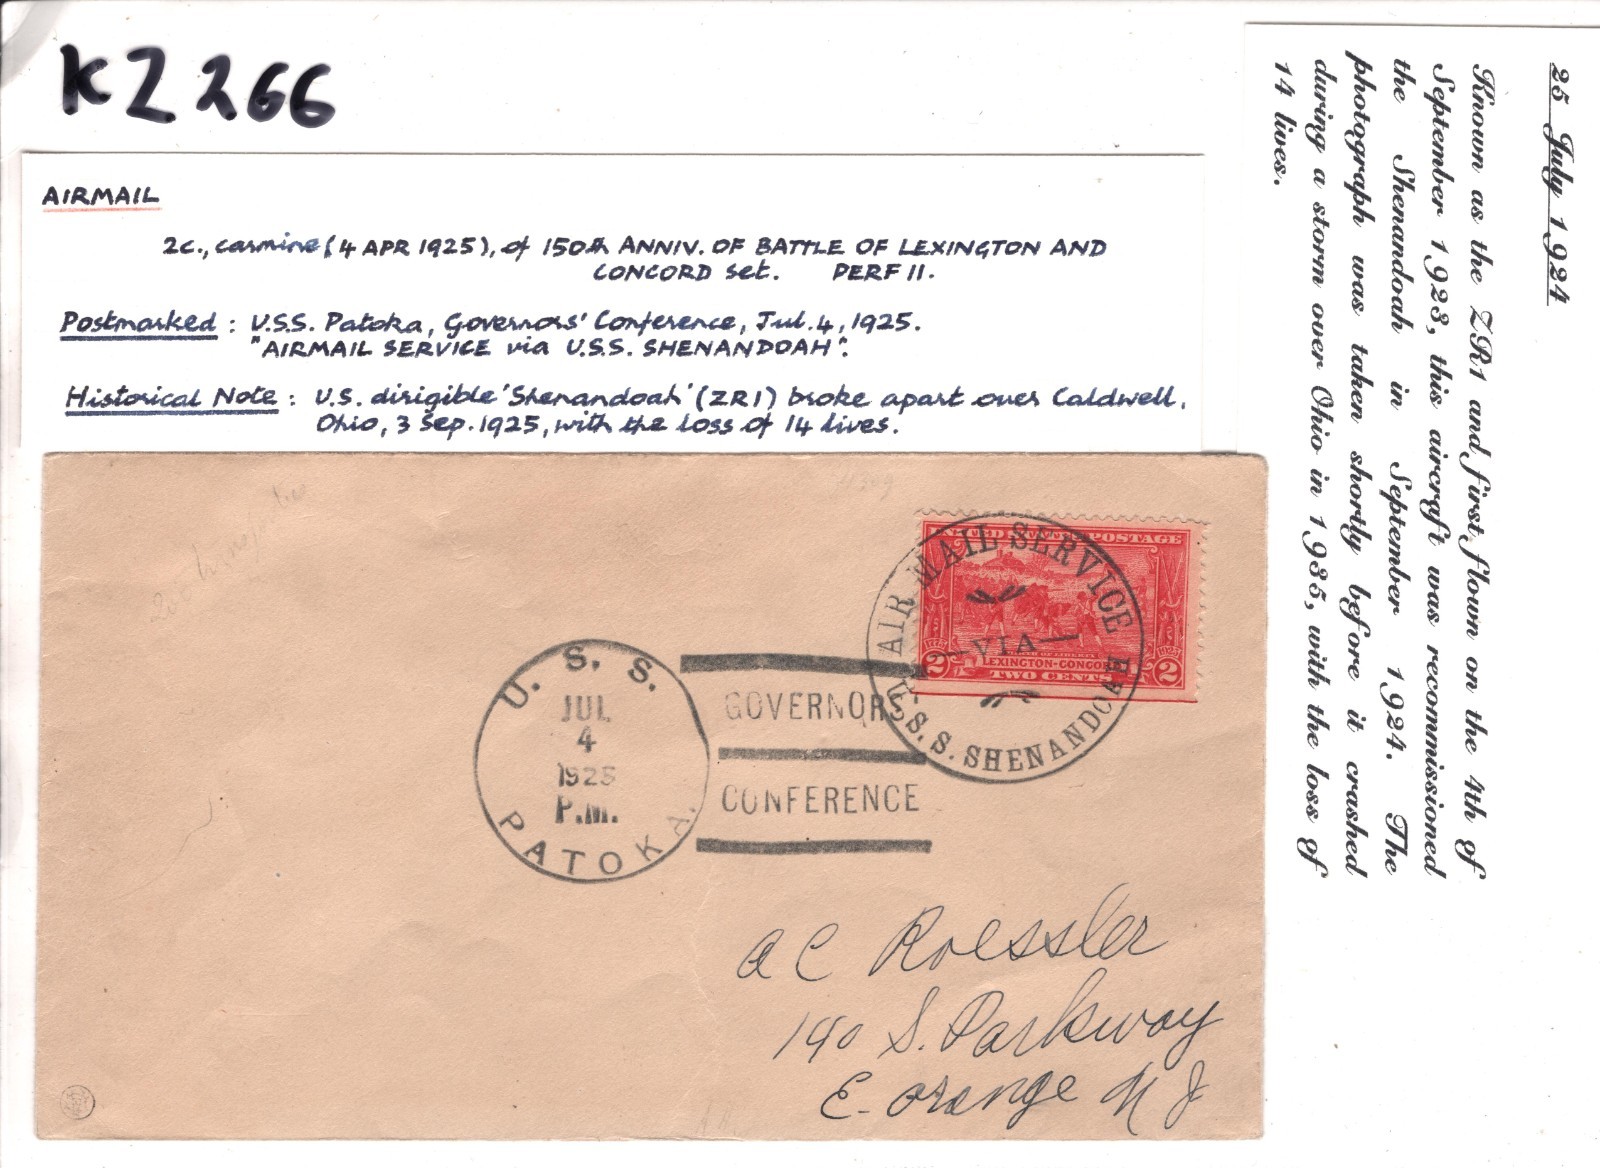 K2266
AIRMAIL
2c., carmine (4 APR 1925), of 150th ANNIV. OF BATTLE OF LEXINGTON AND
CONCORD set. PERF 11.
Postmarked : U.S.S. Patoka, Governors' Conference, Jul. 4, 1925.
"AIRMAIL SERVICE via U.S.S. SHENANDOAH".
Historical Note : U.S. dirigible 'Shenandoah' (ZR1) broke apart over Caldwell,
Ohio, 3 Sep. 1925, with the loss of 14 lives.
25 July 1924
Known as the ZR1 and first flown on the 4th of
September 1923, this aircraft was recommissioned
the Shenandoah in September 1924. The
photograph was taken shortly before it crashed
during a storm over Ohio in 1935, with the loss of
14 lives.
UNITED STATES POSTAGE
1775
1925
BIRTH OF LIBERTY
LEXINGTON-CONCORD
2 TWO CENTS 2
AIR MAIL SERVICE
VIA
U.S.S. SHENANDOAH
U. S. S.
JUL
4
1925
P.M.
PATOKA.
GOVERNORS
CONFERENCE
A C Roessler
140 S. Parkway
E. Orange N J